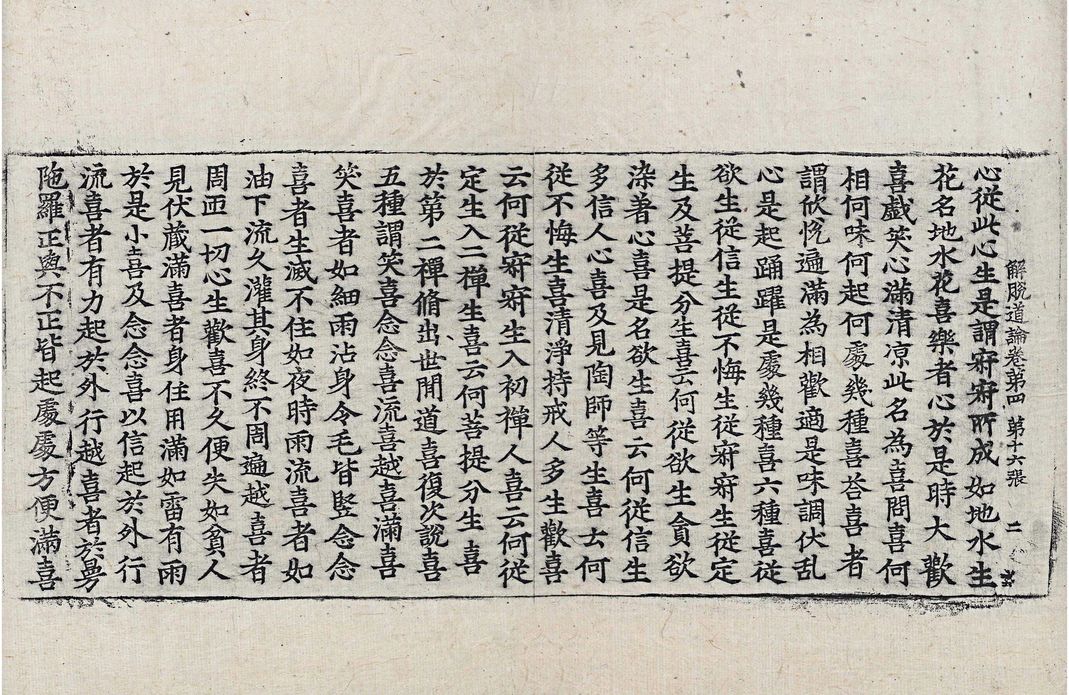 解脫道論卷第四 第十六張 二
心從此心生是謂寂寂所成如地水生
花名地水花喜樂者心於是時大歡
喜戱笑心滿清凉此名為喜問喜何
相何味何起何處幾種喜荅喜者
謂欣悦遍滿為相歡適是味調伏乱
心是起踊躍是處幾種喜六種喜從
欲生從信生從不悔生從寂寂生從定
生及菩提分生喜云何從欲生貪欲
染著心喜是名欲生喜云何從信生
多信人心喜及見陶師等生喜云何
從不悔生喜清淨持戒人多生歡喜
云何從寂寂生入初禪人喜云何從
定生入二禪生喜云何菩提分生喜
於第二禪脩出世間道喜復次說喜
五種謂笑喜念念喜流喜越喜滿喜
笑喜者如細雨沾身令毛皆竪念念
喜者生滅不住如夜時雨流喜者如
油下流久灌其身終不周遍越喜者
周匝一切心生歡喜不久便失如貧人
見伏藏滿喜者身住用滿如雷有雨
於是小喜及念念喜以信起於外行
流喜者有力起於外行越喜者於㝵
陁羅正與不正皆起處處方便滿喜